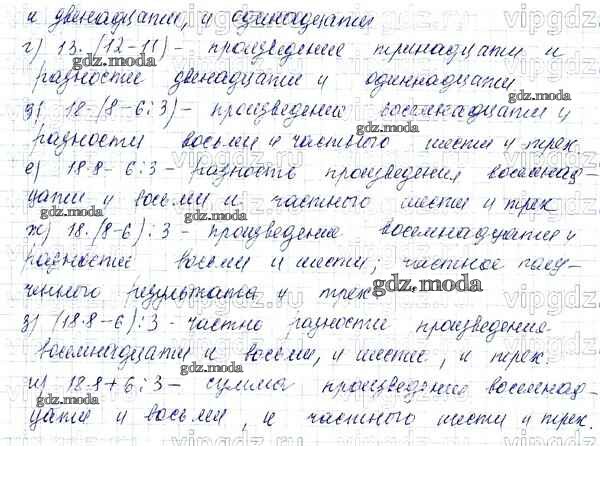 и двенадцати, и одиннадцати
г) 13·(12-11) - произведение тринадцати и
разности двенадцати и одиннадцати
д) 18·(8-6:3) - произведение восемнадцати и
разности восьми и частного шести и трех
е) 18·8-6:3 - разность произведения восемнад-
цати и восьми и частного шести и трех
ж) 18·(8-6):3 - произведение восемнадцати и
разности восьми и шести; частное полу-
ченного результата и трех
з) (18·8-6):3 - частно разности произведение
восемнадцати и восьми, и шести, и трех.
и) 18·8+6:3 - сумма произведение восемнад-
цати и восьми, и частного шести и трех.
gdz.moda
vipgdz.ru